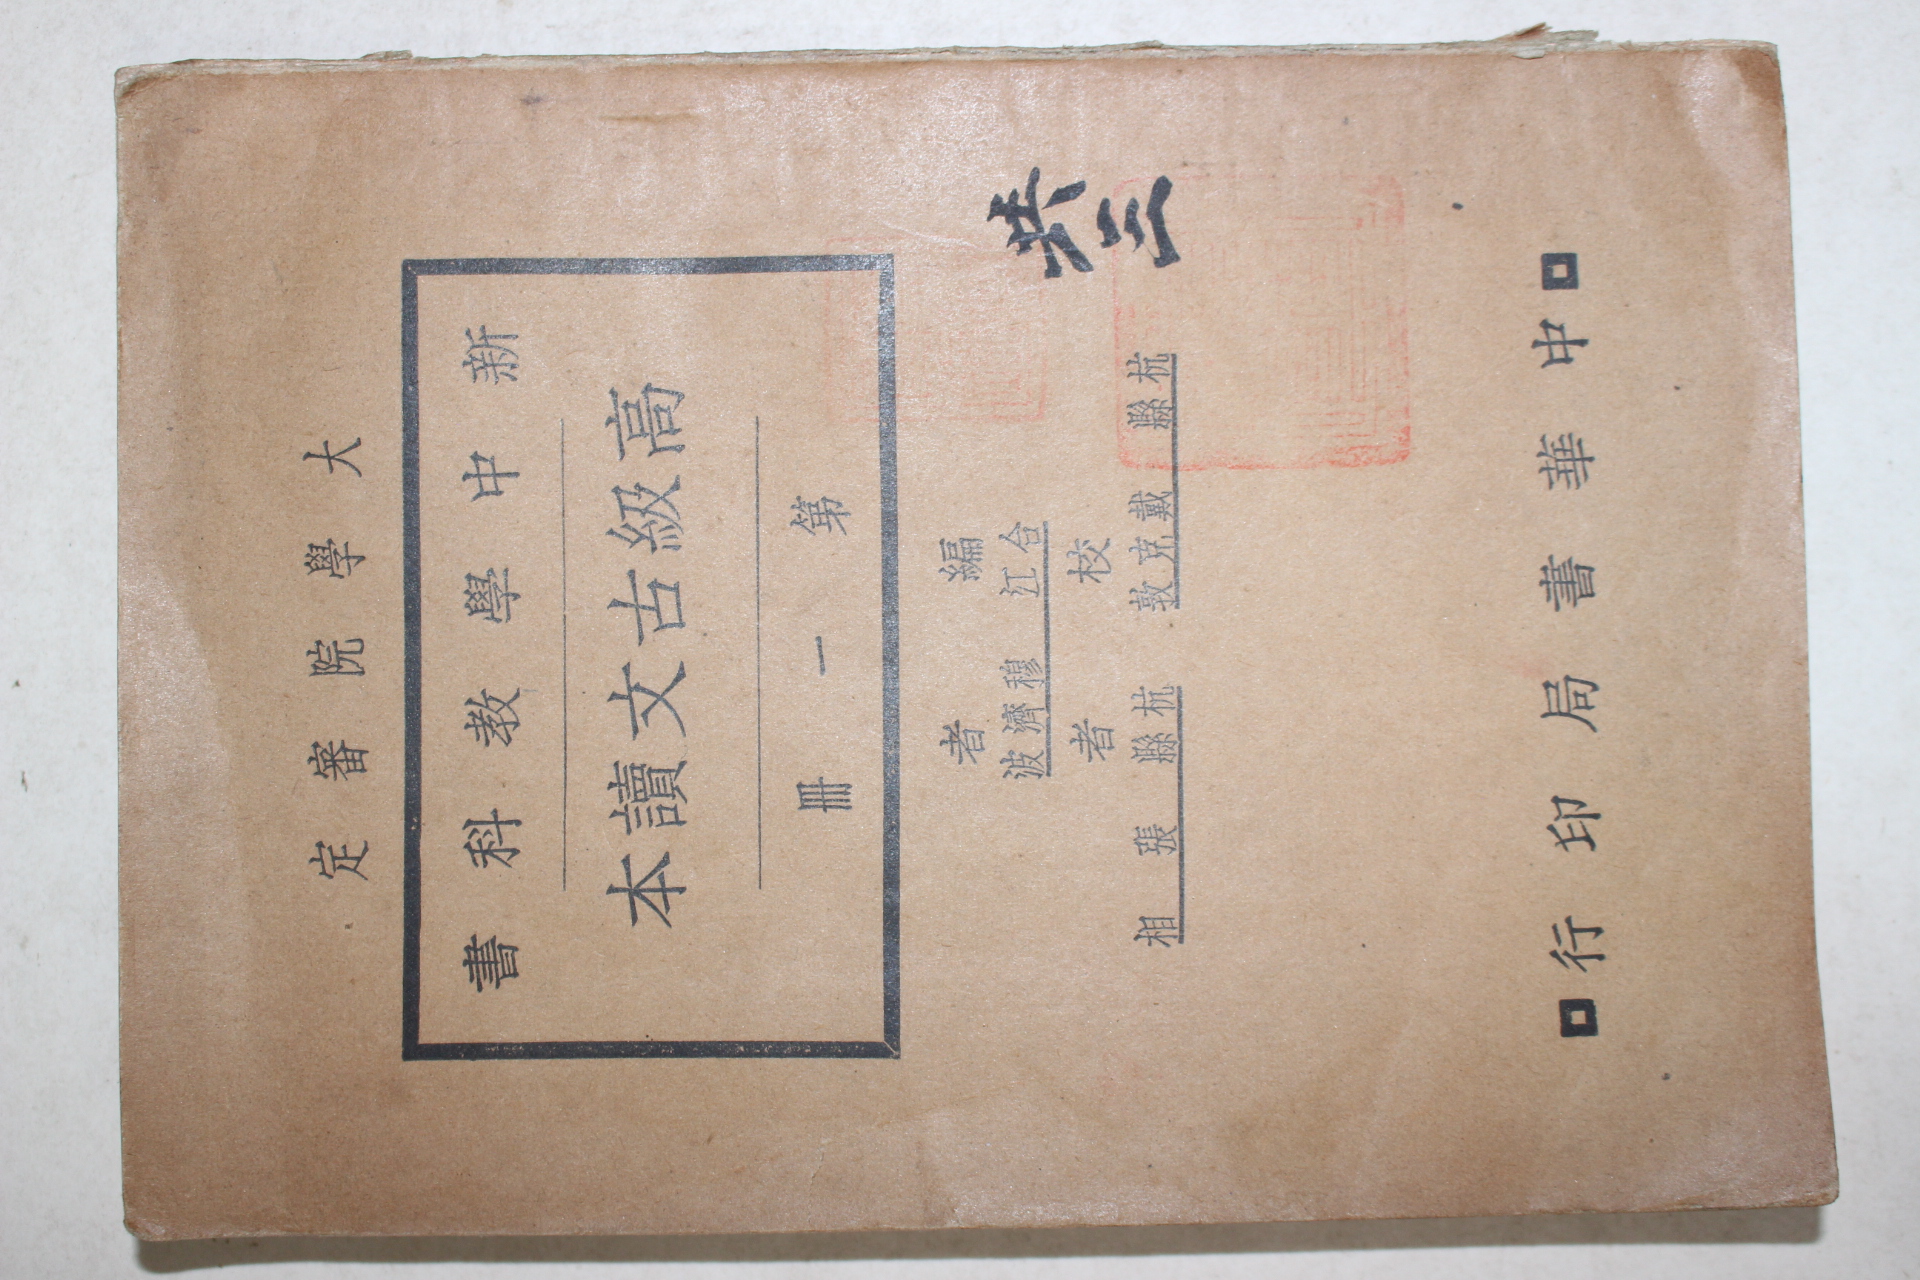 大學院審定
新中學教科書
高級古文讀本
第一冊
編者
合江穆濟波
校者
杭縣戴克敦 杭縣張相
共三
中華書局印行